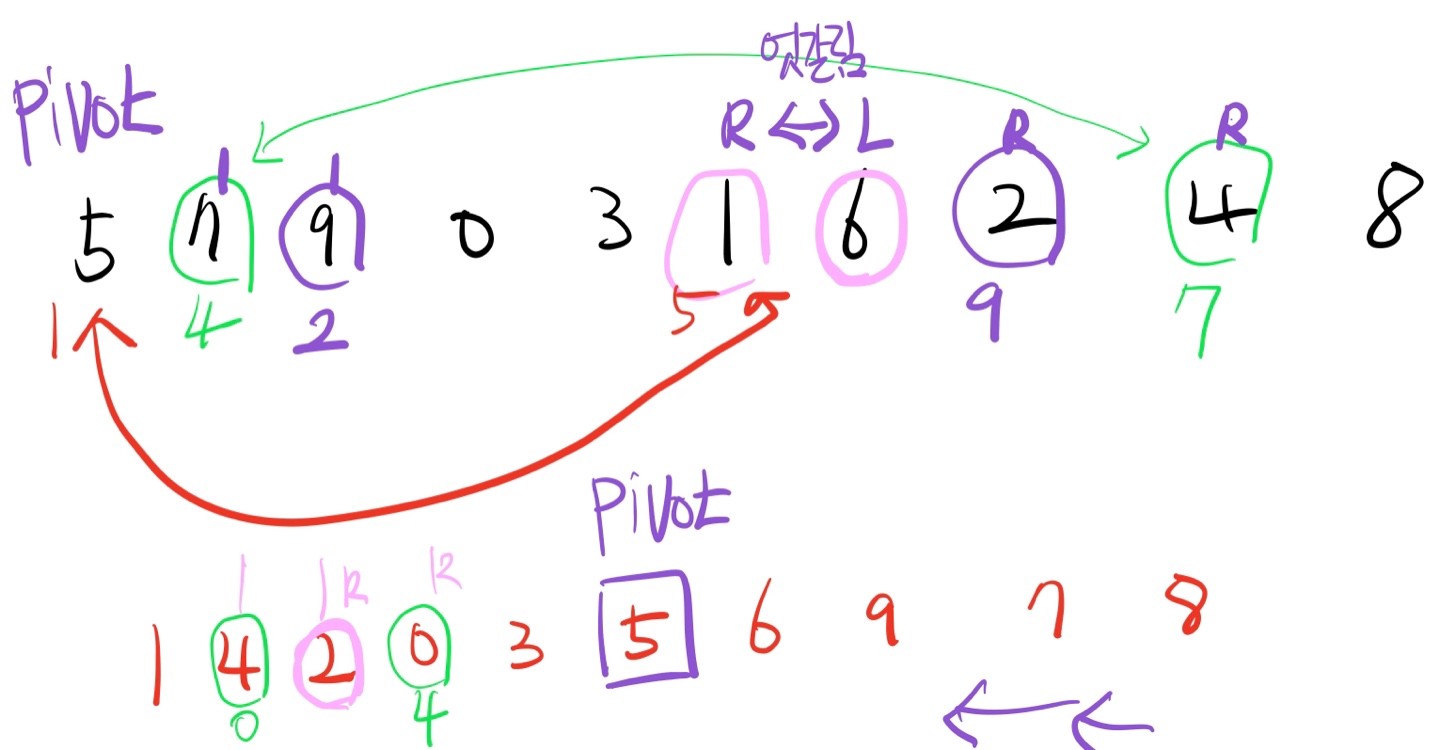 엇갈림
Pivot
R ↔ L R R
l l
5 7 9 0 3 1 6 2 4 8
1 4 2 5 9 7
Pivot
l l R R
1 4 2 0 3 5 6 9 7 8
0 4